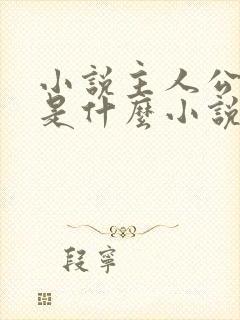 小說主人公
是什麼小說
段寧